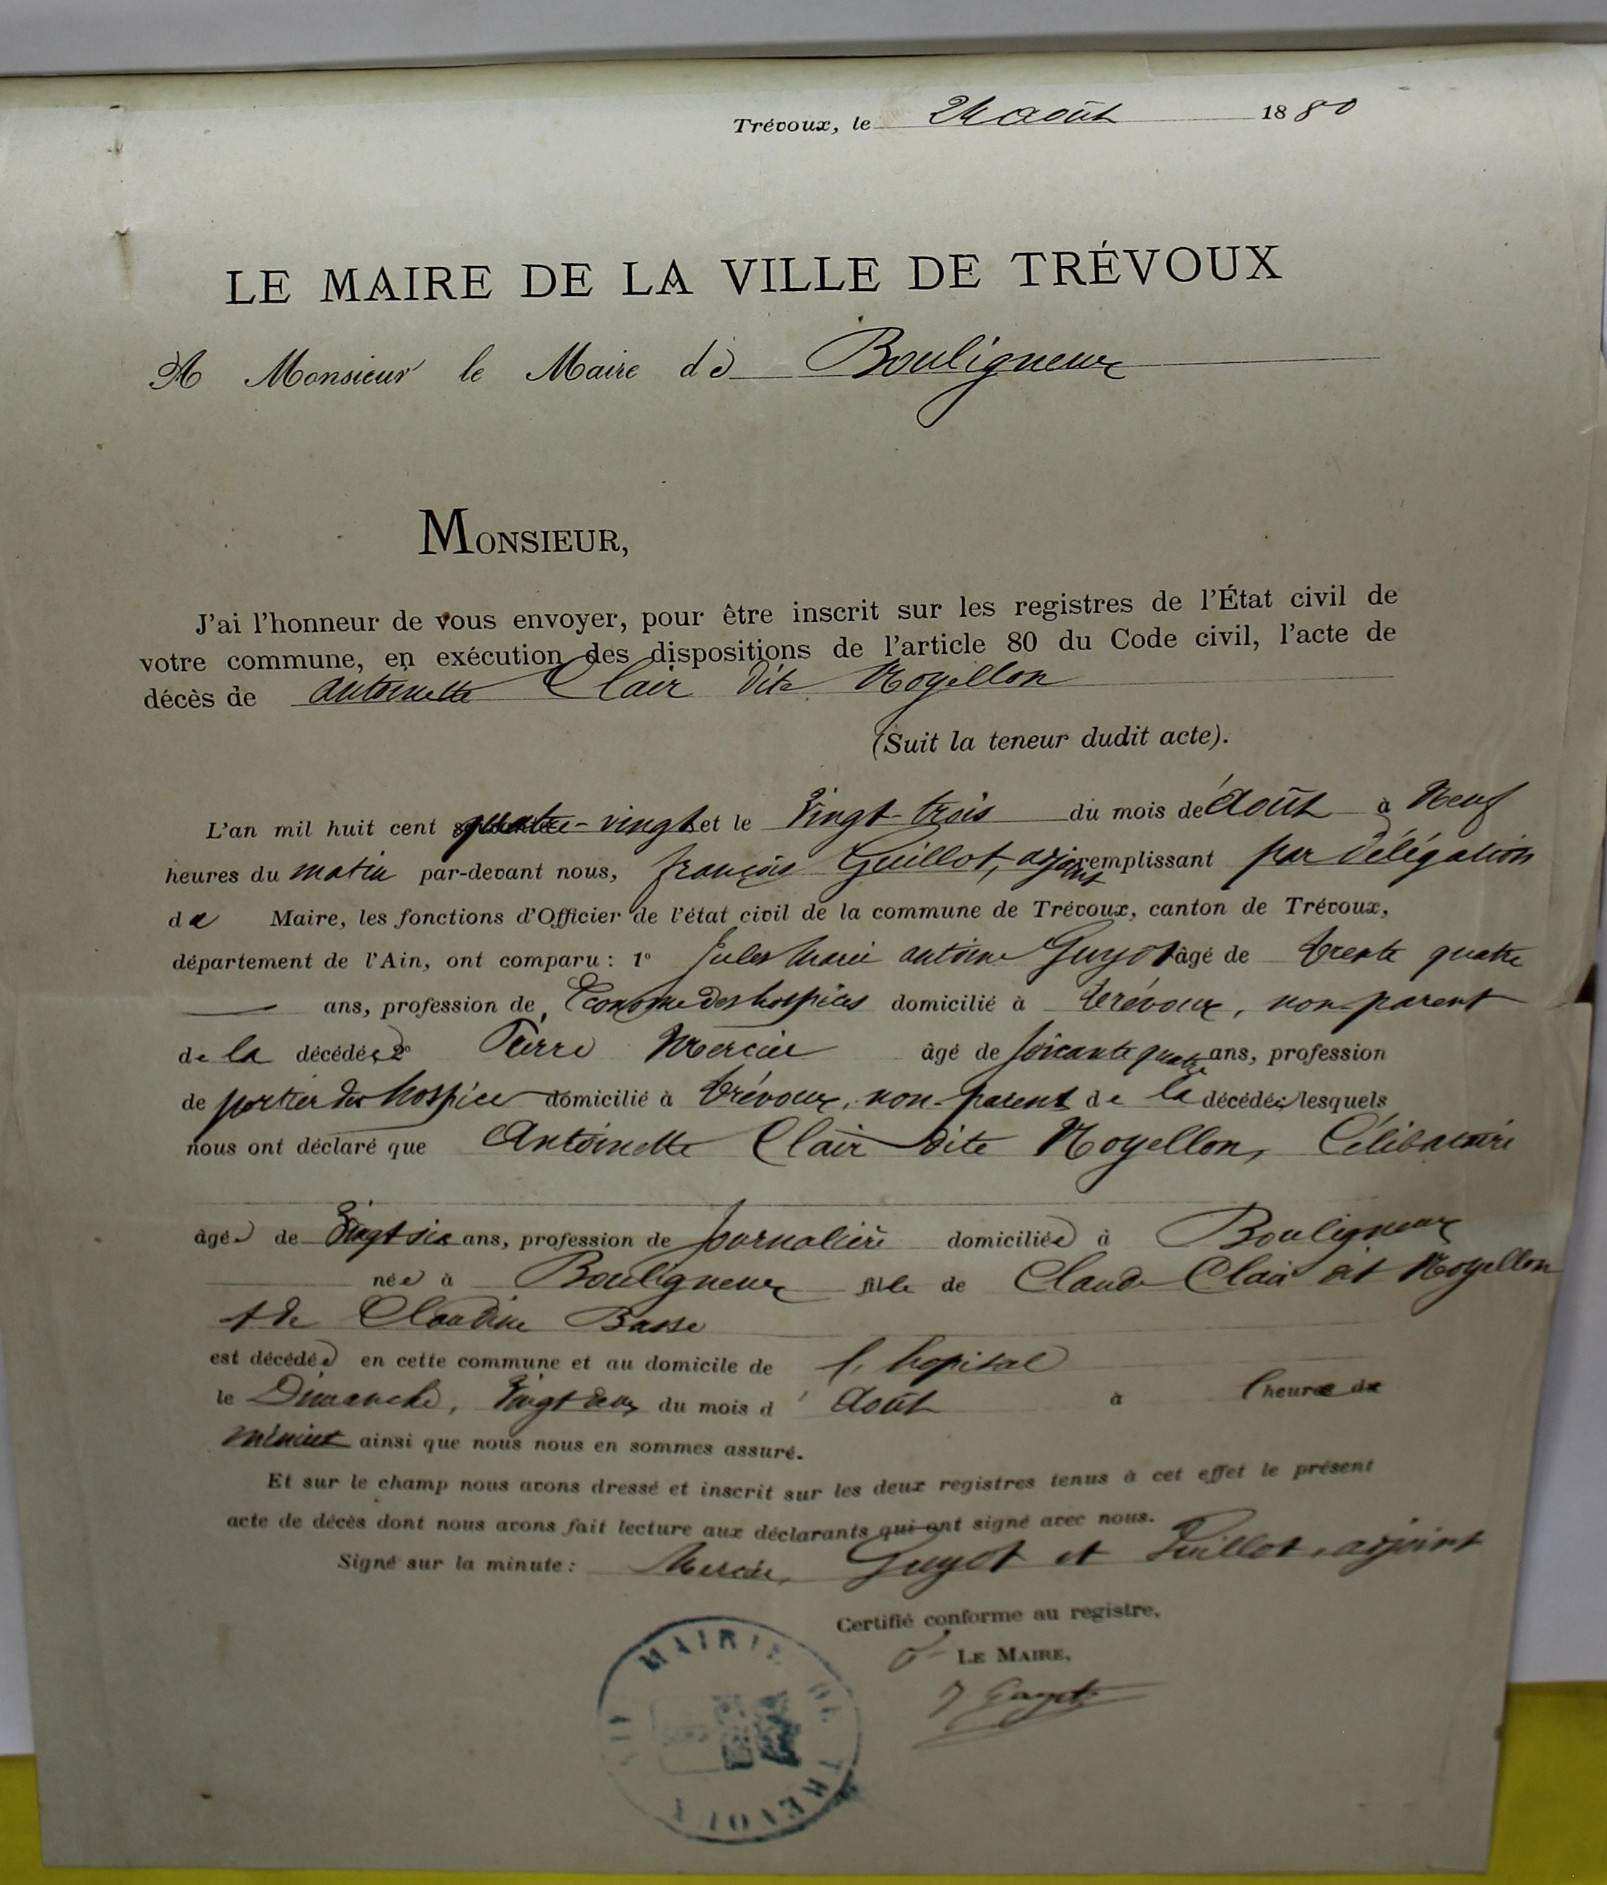 Trévoux, le 24 août 1880
LE MAIRE DE LA VILLE DE TRÉVOUX
A Monsieur le Maire de Bouligneux
MONSIEUR,
J'ai l'honneur de vous envoyer, pour être inscrit sur les registres de l'État civil de
votre commune, en exécution des dispositions de l'article 80 du Code civil, l'acte de
décès de antoinette Clair dite Noyellon
(Suit la teneur dudit acte).
L'an mil huit cent quatre-vingt et le Vingt-trois du mois de Août à Neuf
heures du matin par-devant nous, françois Guillot, adjoint remplissant par délégation
de Maire, les fonctions d'Officier de l'état civil de la commune de Trévoux, canton de Trévoux,
département de l'Ain, ont comparu : 1° Jules Marie antoine Guyot âgé de trente quatre
ans, profession de Econome des hospices domicilié à trévoux, non parent
de la décédée 2° Pierre Mercier âgé de soixante quatre ans, profession
de portier des hospice domicilié à trévoux, non-parent de la décédée lesquels
nous ont déclaré que Antoinette Clair dite Noyellon, Célibataire
âgée de Vingt six ans, profession de journalière domiciliée à Bouligneux
née à Bouligneux fille de Claude Clair dit Noyellon
et de Claudine Basse
est décédée en cette commune et au domicile de l'hopital
le Dimanche, Vingt deux du mois d'Août à l'heure de
minuit ainsi que nous nous en sommes assuré.
Et sur le champ nous avons dressé et inscrit sur les deux registres tenus à cet effet le présent
acte de décès dont nous avons fait lecture aux déclarants qui ont signé avec nous.
Signé sur la minute : Mercier, Guyot et Guillot, adjoint
Certifié conforme au registre.
LE MAIRE,
MAIRIE DE TRÉVOUX